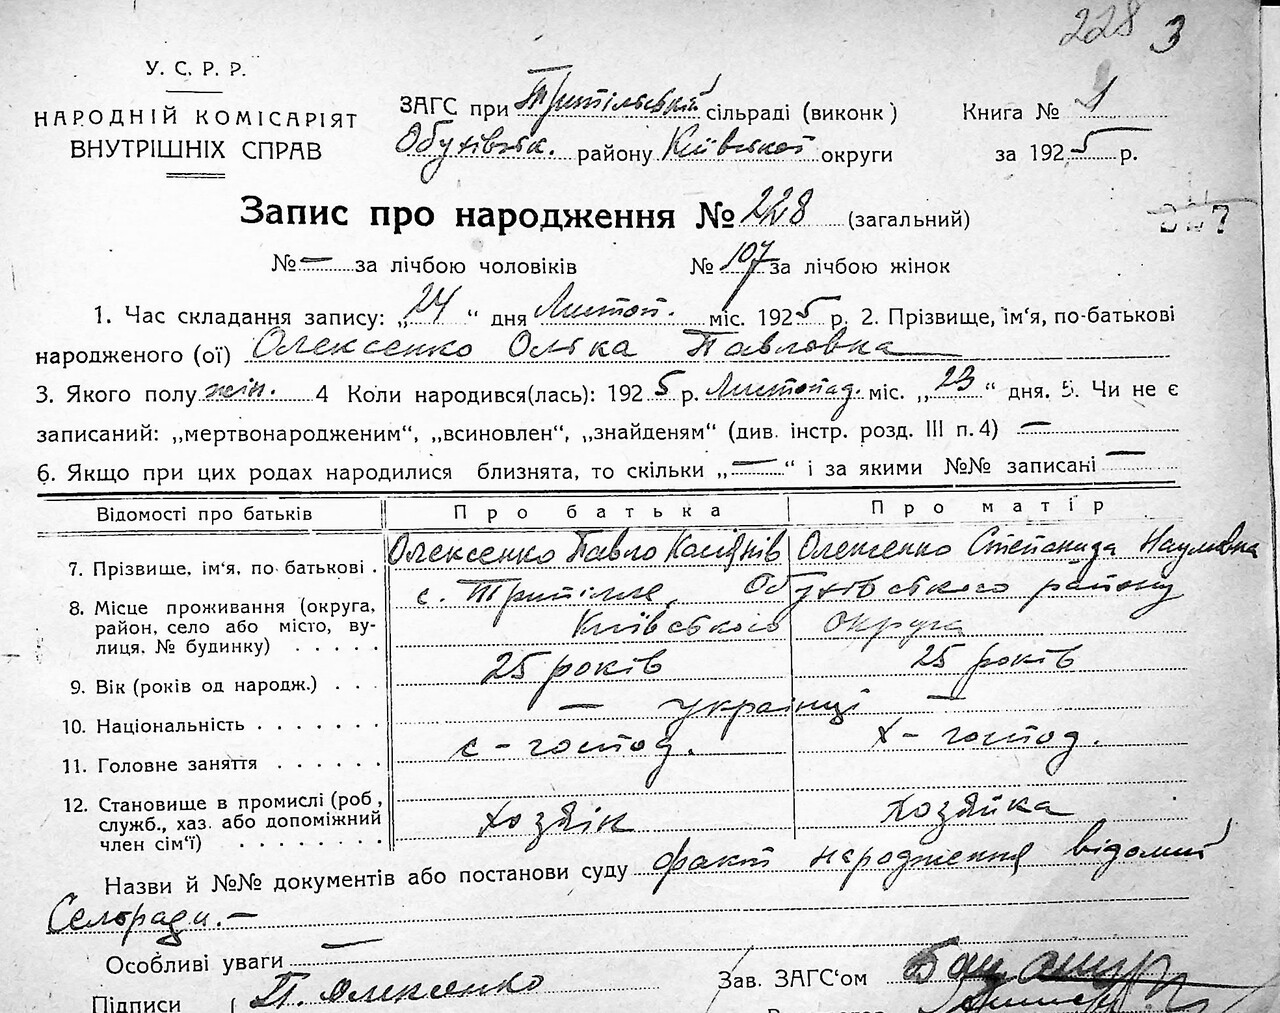 228 3
У. С. Р. Р.
НАРОДНІЙ КОМІСАРІЯТ
ВНУТРІШНІХ СПРАВ
ЗАГС при Трипільській сільраді (виконк )
Обухівськ. району Київської округи
Книга № 1
за 1925 р.
Запис про народження № 228 (загальний)
№ — за лічбою чоловіків № 107 за лічбою жінок
1. Час складання запису: „24“ дня Листоп. міс. 1925 р. 2. Прізвище, ім‘я, по-батькові
народженого (ої) Олексенко Олька Павловна
3. Якого полу жін. 4 Коли народився(лась): 1925 р. Листопад. міс. „23“ дня. 5. Чи не є
записаний: „мертвонародженим“, „всиновлен“, „знайденям“ (див. інстр. розд. III п. 4) —
6. Якщо при цих родах народилися близнята, то скільки „—“ і за якими №№ записані —
Відомості про батьків Про батька Про матір
7. Прізвище, ім‘я, по-батькові . Олексенко Павло Олексенко Степанида Наумовна
8. Місце проживання (округа, с. Трипілле, Обухівського району
район, село або місто, ву- Київського Округа
лиця, № будинку) . . . . .
9. Вік (років од народж.) . . . 25 років 25 років
10. Національність . . . . . . . — українці —
11. Головне заняття . . . . . . с-господ. х-господ.
12. Становище в промислі (роб., хозяїн хозяйка
служб., хаз. або допоміжний
член сім‘ї) . . . . . . . .
Назви й №№ документів або постанови суду факт народження відомий
Сельради.—
Особливі уваги —
Підписи ( П. Олексенко
Зав. ЗАГС‘ом